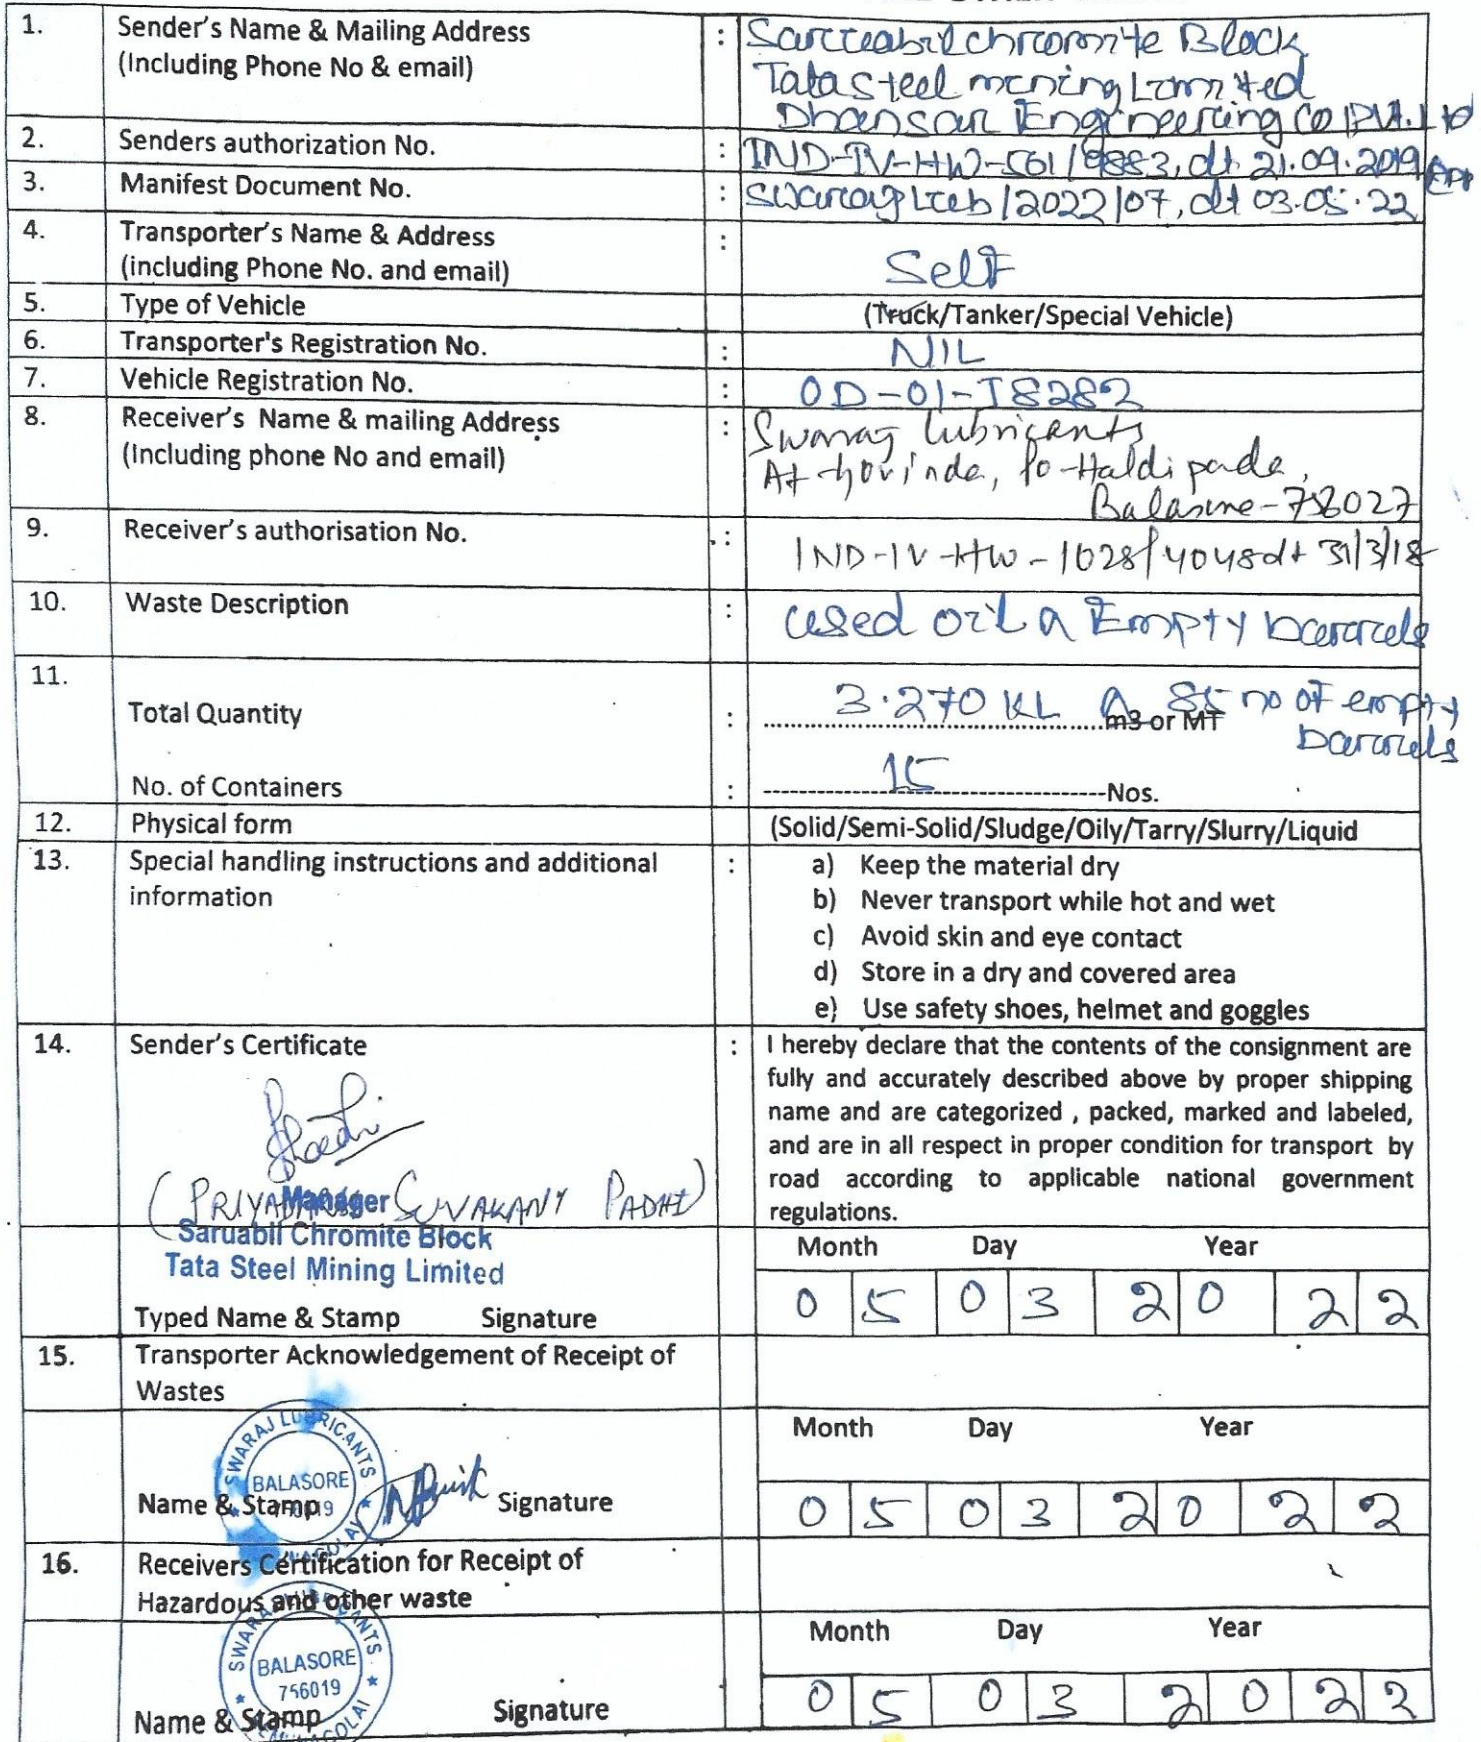 1. Sender's Name & Mailing Address : Sarccabil chromite Block
(Including Phone No & email) Tata steel mining Limited
Dhansar Engineering Co PVt. Ltd
2. Senders authorization No. : IND-IV-HW-561/9883, dt. 21.09.2019
3. Manifest Document No. : Swarag Lub/2022/07, dt 03.05.22
4. Transporter's Name & Address :
(including Phone No. and email) Self
5. Type of Vehicle (Truck/Tanker/Special Vehicle)
6. Transporter's Registration No. : NIL
7. Vehicle Registration No. : OD-01-J8282
8. Receiver's Name & mailing Address : Swaraj Lubricants
(Including phone No and email) At-Govinda, Po-Haldipada,
Balasore-756027
9. Receiver's authorisation No. : IND-IV-HW-1028/4048 dt 31/3/18
10. Waste Description : used oil & Empty barrels
11.
Total Quantity : 3.270 KL & 85 no of empty
m3 or MT barrels
No. of Containers : 15 Nos.
12. Physical form (Solid/Semi-Solid/Sludge/Oily/Tarry/Slurry/Liquid
13. Special handling instructions and additional : a) Keep the material dry
information b) Never transport while hot and wet
c) Avoid skin and eye contact
d) Store in a dry and covered area
e) Use safety shoes, helmet and goggles
14. Sender's Certificate : I hereby declare that the contents of the consignment are
fully and accurately described above by proper shipping
name and are categorized , packed, marked and labeled,
and are in all respect in proper condition for transport by
road according to applicable national government
regulations.
(PRIYADARSI SUVAKANT PADHI)
Manager
Saruabil Chromite Block
Tata Steel Mining Limited
Month Day Year
0 5 0 3 2 0 2 2
Typed Name & Stamp Signature
15. Transporter Acknowledgement of Receipt of
Wastes
Month Day Year
SWARAJ LUBRICANTS
BALASORE
Name & Stamp Signature
0 5 0 3 2 0 2 2
16. Receivers Certification for Receipt of
Hazardous and other waste
Month Day Year
BALASORE
756019
Name & Stamp Signature
0 5 0 3 2 0 2 2